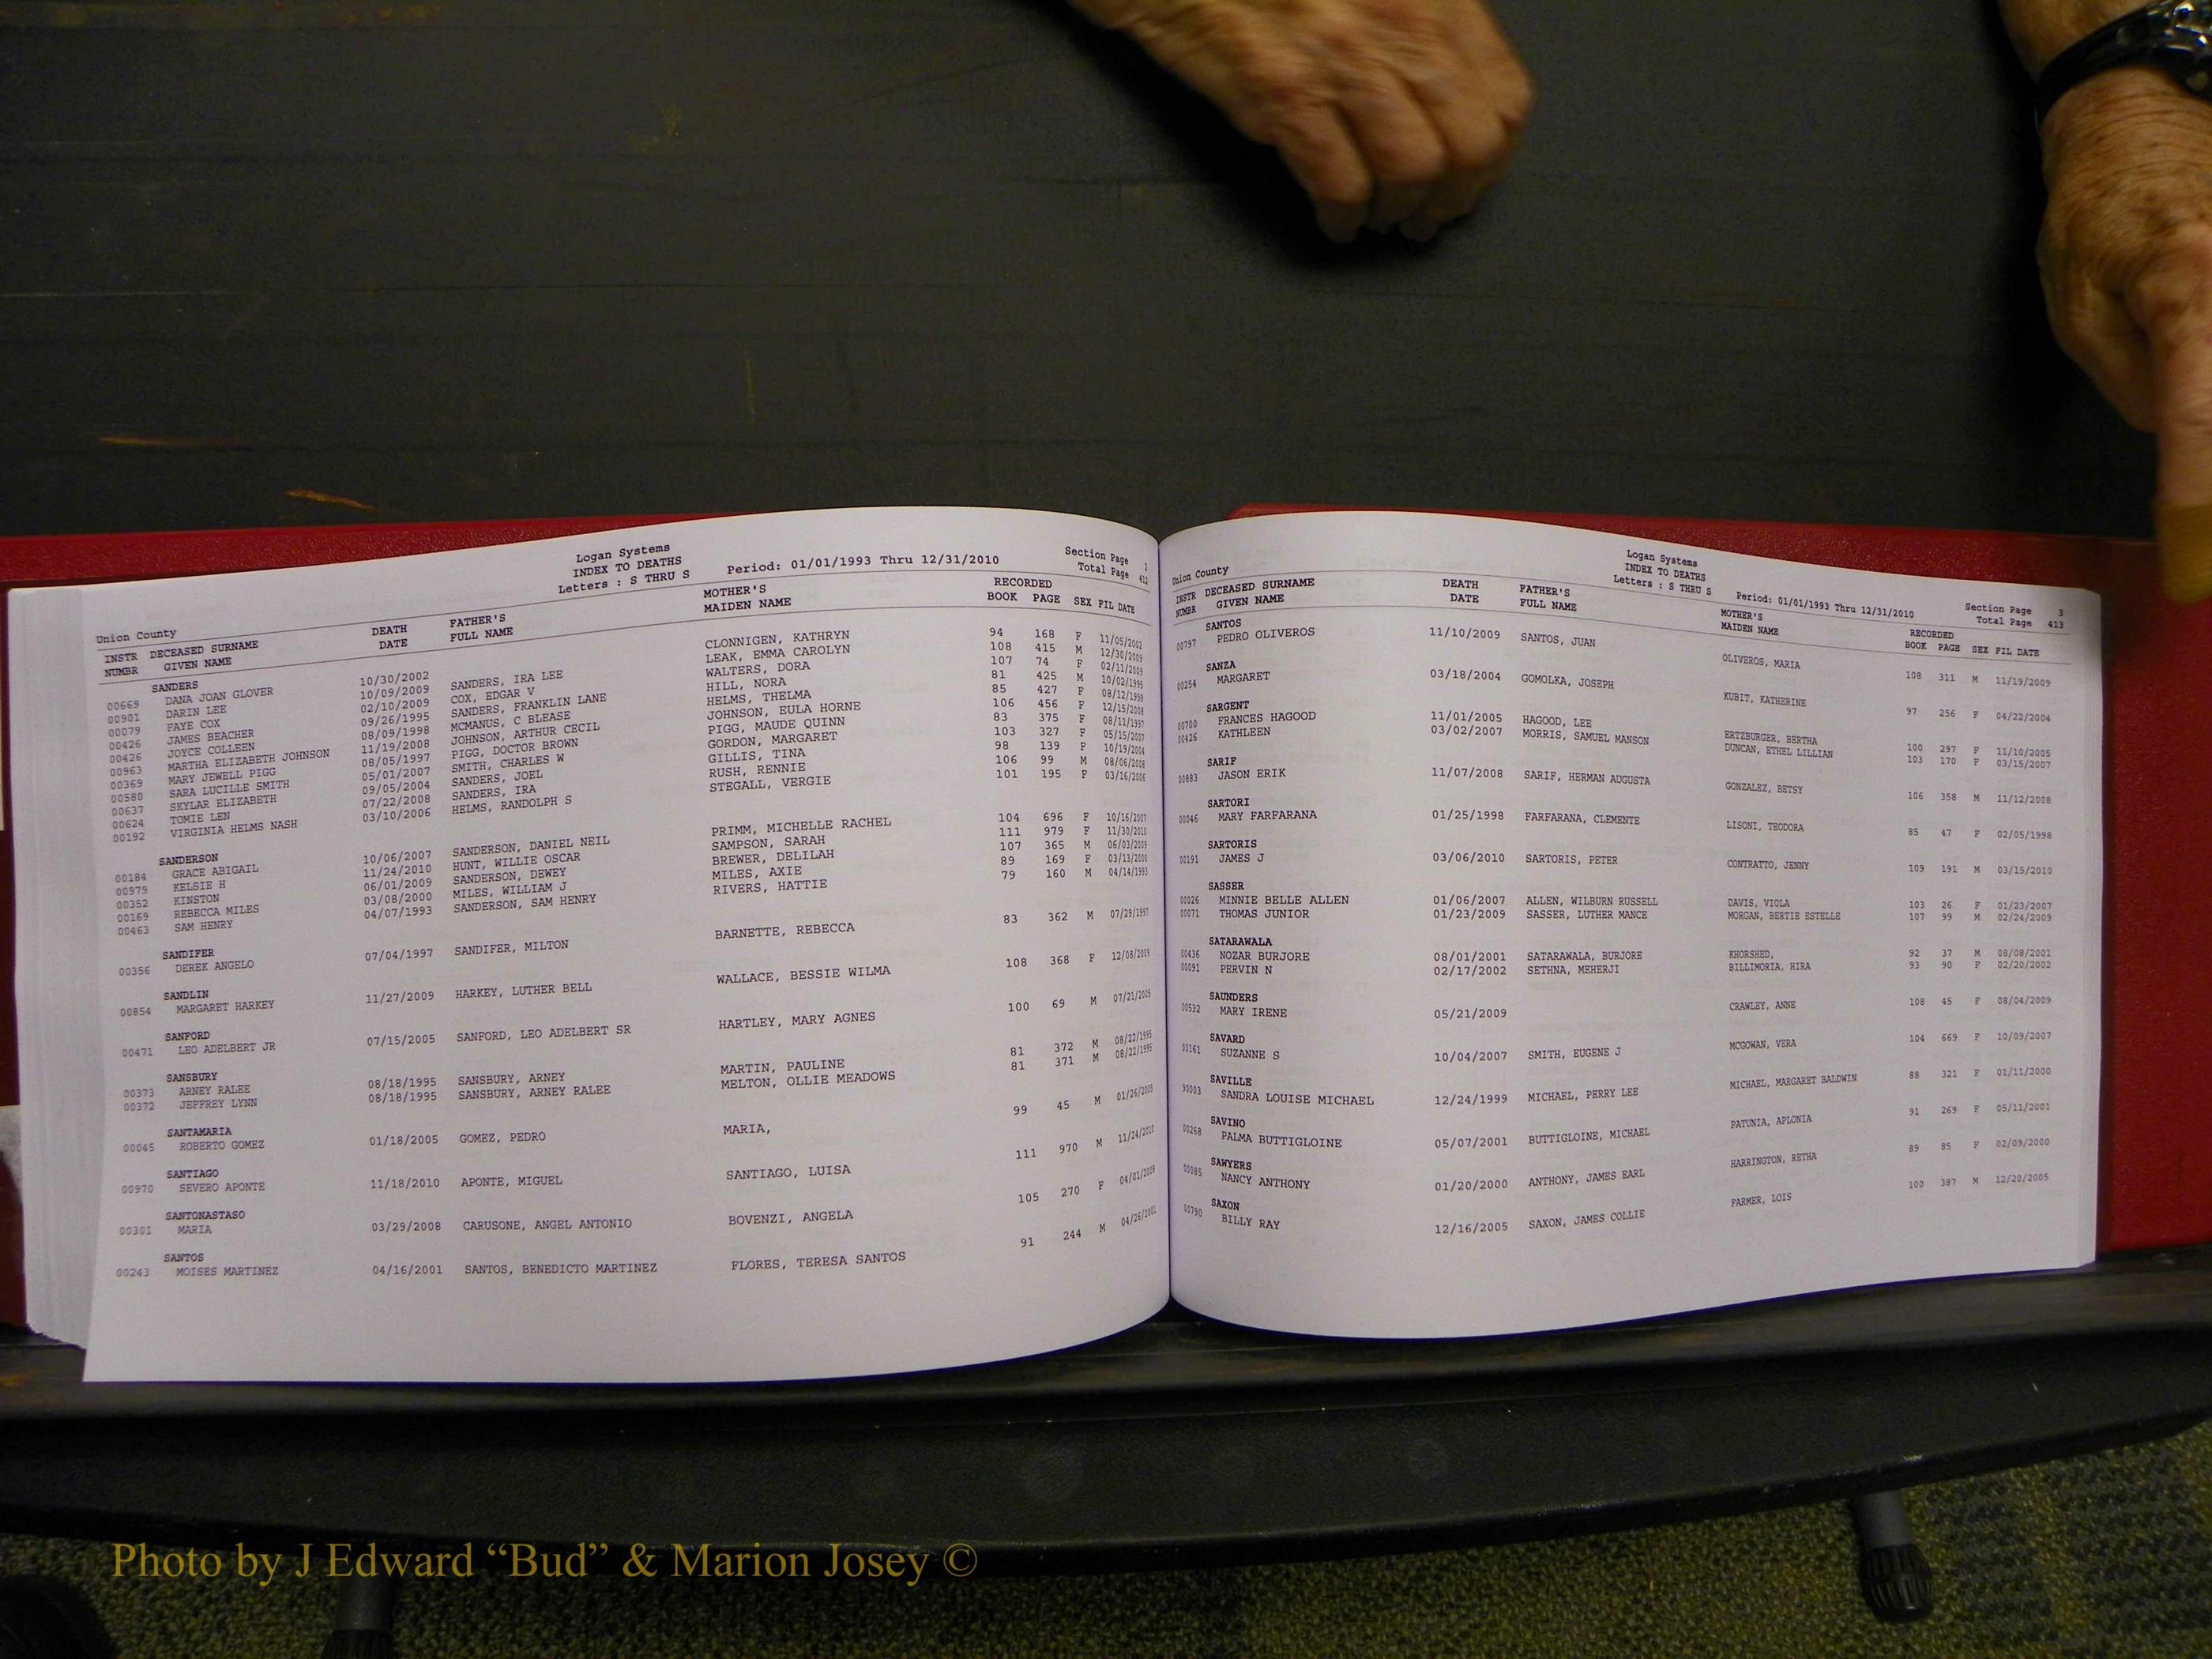 Logan Systems
INDEX TO DEATHS
Letters : S THRU S Period: 01/01/1993 Thru 12/31/2010
Section Page 2
Total Page 412
Union County
INSTR DECEASED SURNAME DEATH FATHER'S MOTHER'S RECORDED
NUMBR GIVEN NAME DATE FULL NAME MAIDEN NAME BOOK PAGE SEX FIL DATE
SANDERS
00669 DANA JOAN GLOVER 10/30/2002 SANDERS, IRA LEE CLONNIGEN, KATHRYN 94 168 F 11/05/2002
00901 DARIN LEE 10/09/2009 COX, EDGAR V LEAK, EMMA CAROLYN 108 415 M 12/30/2009
00079 FAYE COX 02/10/2009 SANDERS, FRANKLIN LANE WALTERS, DORA 107 74 F 02/11/2009
00426 JAMES BEACHER 09/26/1995 MCMANUS, C BLEASE HILL, NORA 81 425 M 10/02/1995
00426 JOYCE COLLEEN 08/09/1998 JOHNSON, ARTHUR CECIL HELMS, THELMA 85 427 F 08/12/1998
00963 MARTHA ELIZABETH JOHNSON 11/19/2008 PIGG, DOCTOR BROWN JOHNSON, EULA HORNE 106 456 F 12/15/2008
00369 MARY JEWELL PIGG 08/05/1997 SMITH, CHARLES W PIGG, MAUDE QUINN 83 375 F 08/11/1997
00580 SARA LUCILLE SMITH 05/01/2007 SANDERS, JOEL GORDON, MARGARET 103 327 F 05/15/2007
00637 SKYLAR ELIZABETH 09/05/2004 SANDERS, IRA GILLIS, TINA 98 139 F 10/19/2004
00624 TOMIE LEN 07/22/2008 HELMS, RANDOLPH S RUSH, RENNIE 106 99 M 08/06/2008
00192 VIRGINIA HELMS NASH 03/10/2006 STEGALL, VERGIE 101 195 F 03/16/2006
SANDERSON
00184 GRACE ABIGAIL 10/06/2007 SANDERSON, DANIEL NEIL PRIMM, MICHELLE RACHEL 104 696 F 10/16/2007
00979 KELSIE H 11/24/2010 HUNT, WILLIE OSCAR SAMPSON, SARAH 111 979 F 11/30/2010
00352 KINSTON 06/01/2009 SANDERSON, DEWEY BREWER, DELILAH 107 365 M 06/03/2009
00169 REBECCA MILES 03/08/2000 MILES, WILLIAM J MILES, AXIE 89 169 F 03/13/2000
00463 SAM HENRY 04/07/1993 SANDERSON, SAM HENRY RIVERS, HATTIE 79 160 M 04/14/1993
SANDIFER
00356 DEREK ANGELO 07/04/1997 SANDIFER, MILTON BARNETTE, REBECCA 83 362 M 07/29/1997
SANDLIN
00854 MARGARET HARKEY 11/27/2009 HARKEY, LUTHER BELL WALLACE, BESSIE WILMA 108 368 F 12/08/2009
SANFORD
00471 LEO ADELBERT JR 07/15/2005 SANFORD, LEO ADELBERT SR HARTLEY, MARY AGNES 100 69 M 07/21/2005
SANSBURY
00373 ARNEY RALEE 08/18/1995 SANSBURY, ARNEY MARTIN, PAULINE 81 372 M 08/22/1995
00372 JEFFREY LYNN 08/18/1995 SANSBURY, ARNEY RALEE MELTON, OLLIE MEADOWS 81 371 M 08/22/1995
SANTAMARIA
00045 ROBERTO GOMEZ 01/18/2005 GOMEZ, PEDRO MARIA, 99 45 M 01/26/2005
SANTIAGO
00970 SEVERO APONTE 11/18/2010 APONTE, MIGUEL SANTIAGO, LUISA 111 970 M 11/24/2010
SANTONASTASO
00301 MARIA 03/29/2008 CARUSONE, ANGEL ANTONIO BOVENZI, ANGELA 105 270 F 04/01/2008
SANTOS
00243 MOISES MARTINEZ 04/16/2001 SANTOS, BENEDICTO MARTINEZ FLORES, TERESA SANTOS 91 244 M 04/26/2001
Logan Systems
INDEX TO DEATHS
Letters : S THRU S Period: 01/01/1993 Thru 12/31/2010
Section Page 3
Total Page 413
Union County
INSTR DECEASED SURNAME DEATH FATHER'S MOTHER'S RECORDED
NUMBR GIVEN NAME DATE FULL NAME MAIDEN NAME BOOK PAGE SEX FIL DATE
SANTOS
00797 PEDRO OLIVEROS 11/10/2009 SANTOS, JUAN OLIVEROS, MARIA 108 311 M 11/19/2009
SANZA
00254 MARGARET 03/18/2004 GOMOLKA, JOSEPH KUBIT, KATHERINE 97 256 F 04/22/2004
SARGENT
00700 FRANCES HAGOOD 11/01/2005 HAGOOD, LEE ERTZBURGER, BERTHA 100 297 F 11/10/2005
00426 KATHLEEN 03/02/2007 MORRIS, SAMUEL MANSON DUNCAN, ETHEL LILLIAN 103 170 F 03/15/2007
SARIF
00883 JASON ERIK 11/07/2008 SARIF, HERMAN AUGUSTA GONZALEZ, BETSY 106 358 M 11/12/2008
SARTORI
00046 MARY FARFARANA 01/25/1998 FARFARANA, CLEMENTE LISONI, TEODORA 85 47 F 02/05/1998
SARTORIS
00191 JAMES J 03/06/2010 SARTORIS, PETER CONTRATTO, JENNY 109 191 M 03/15/2010
SASSER
00026 MINNIE BELLE ALLEN 01/06/2007 ALLEN, WILBURN RUSSELL DAVIS, VIOLA 103 26 F 01/23/2007
00071 THOMAS JUNIOR 01/23/2009 SASSER, LUTHER MANCE MORGAN, BERTIE ESTELLE 107 99 M 02/24/2009
SATARAWALA
00436 NOZAR BURJORE 08/01/2001 SATARAWALA, BURJORE KHORSHED, 92 37 M 08/08/2001
00091 PERVIN N 02/17/2002 SETHNA, MEHERJI BILLIMORIA, HIRA 93 90 F 02/20/2002
SAUNDERS
00532 MARY IRENE 05/21/2009 CRAWLEY, ANNE 108 45 F 08/04/2009
SAVARD
00161 SUZANNE S 10/04/2007 SMITH, EUGENE J MCGOWAN, VERA 104 669 F 10/09/2007
SAVILLE
90003 SANDRA LOUISE MICHAEL 12/24/1999 MICHAEL, PERRY LEE MICHAEL, MARGARET BALDWIN 88 321 F 01/11/2000
SAVINO
00268 PALMA BUTTIGLOINE 05/07/2001 BUTTIGLOINE, MICHAEL PATUNIA, APLONIA 91 269 F 05/11/2001
SAWYERS
00085 NANCY ANTHONY 01/20/2000 ANTHONY, JAMES EARL HARRINGTON, RETHA 89 85 F 02/09/2000
SAXON
00790 BILLY RAY 12/16/2005 SAXON, JAMES COLLIE FARMER, LOIS 100 387 M 12/20/2005
Photo by J Edward “Bud” & Marion Josey ©